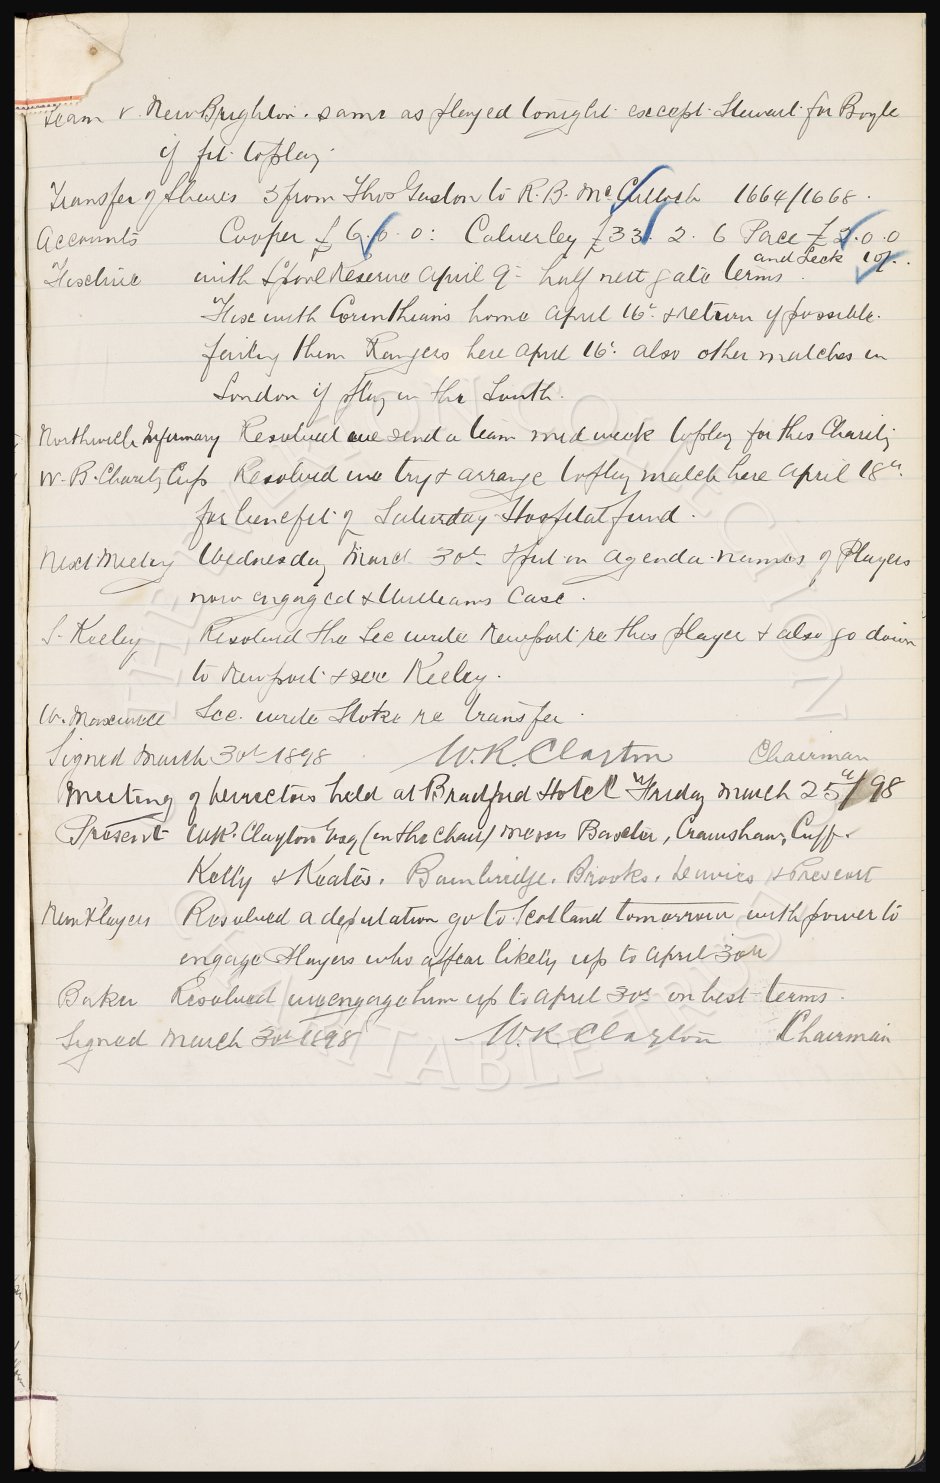 Team v. New Brighton. same as played tonight except Stewart for Boyle
if fit to play
Transfer of Shares 3 from Thos Gaston to R.B. McCulloch 1664/1668.
Accounts Cooper £6.6.0: Calverley £33.2.6 Pace £2.0.0
and Leek 10/-.
Fixture with L'pool Reserve April 9th half nett gate terms.
Fix with Corinthians home April 16th & return if possible.
failing them Rangers here April 16th. also other matches in
London if play in the South.
Northwich Infirmary Resolved we send a team mid week to play for this Charity
W.B. Charity Cup Resolved we try & arrange to play match here April 18th.
for benefit of Saturday Hospital fund.
Next Meeting Wednesday March 30th & put on agenda names of Players
now engaged & Williams Case.
S. Keeley Resolved the Sec write Newport re this player & also go down
to Newport & see Keeley.
W. Maxwell Sec. write Stoke re transfer.
Signed March 30th 1898 W.R. Clayton Chairman
Meeting of Directors held at Bradford Hotel Friday March 25th/98
Present W.R. Clayton Esq (in the Chair) Messrs Baxter, Crawshaw, Cuff.
Kelly & Keates. Bainbridge. Brooks. Davies & Prescott
New Players Resolved a deputation go to Scotland tomorrow with power to
engage Players who appear likely up to April 30th
Baker Resolved we engage him up to April 30th on best terms.
Signed March 30th 1898 W.R. Clayton Chairman
THE EVERTON COLLECTION
CHARITABLE TRUST